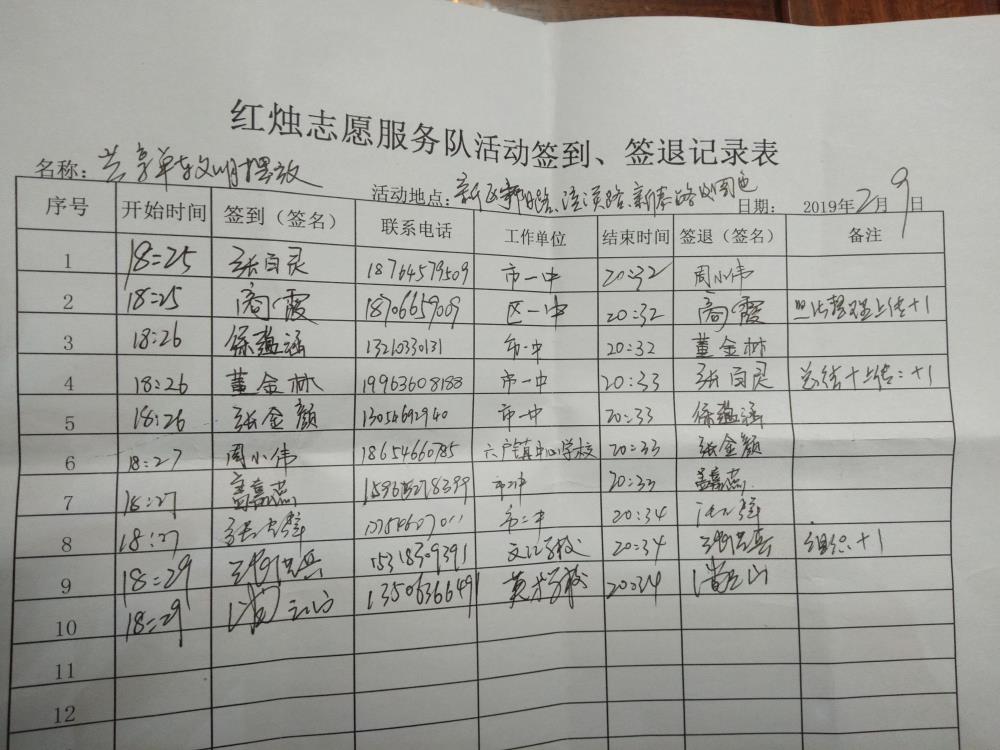 红烛志愿服务队活动签到、签退记录表
名称：共享单车文明摆放 活动地点：新区 日期：2019年2月9日
序号 开始时间 签到（签名） 联系电话 工作单位 结束时间 签退（签名） 备注
1 18:25 张百灵 18764579509 市一中 20:32 周小伟
2 18:25 商霞 18706659009 区一中 20:32 商霞 照片整理上传+1
3 18:26 徐蕴涵 13210330131 市一中 20:32 董金林
4 18:26 董金林 19963608188 市一中 20:33 张百灵 总结+上传：+1
5 18:26 张金颜 13054692940 市一中 20:33 徐蕴涵
6 18:27 周小伟 18654660785 六户镇中心学校 20:33 张金颜
7 18:27 20:33
8 18:27 市二中 20:34 组织+1
9 18:29 15318309391 20:34
10 18:29 13506366491 英才学校 20:34
11
12